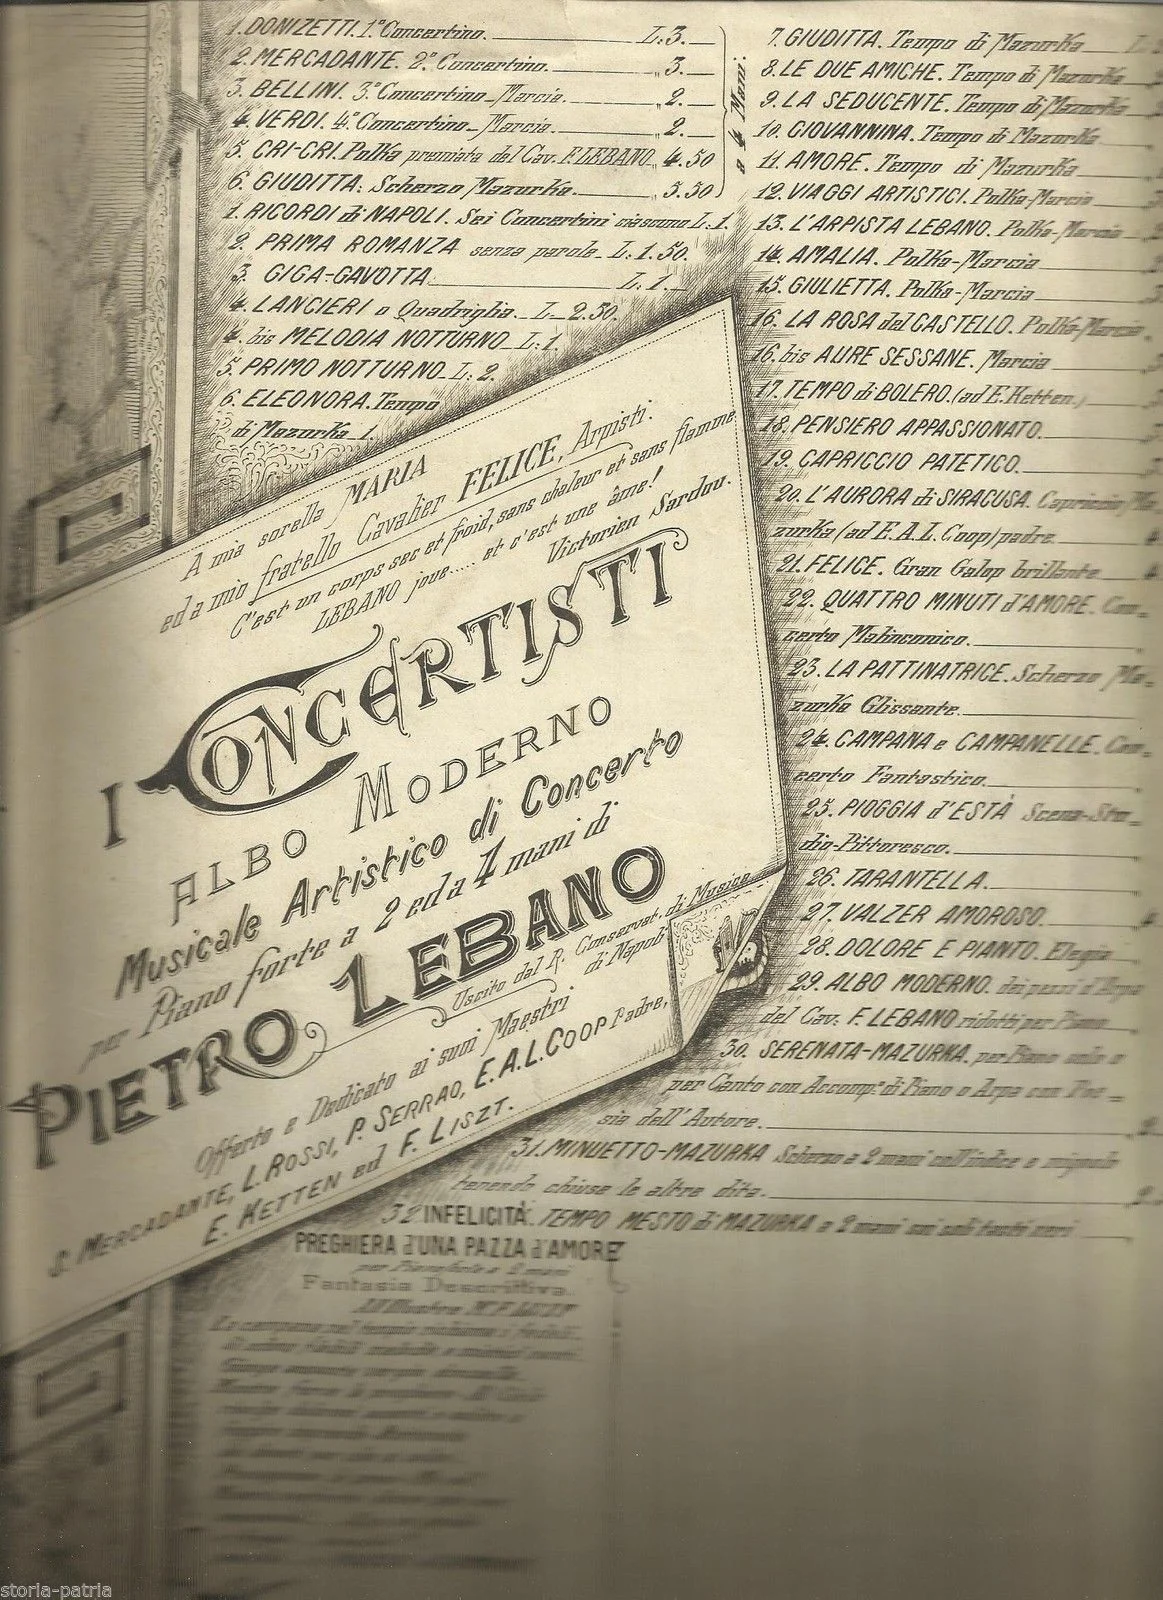 1. DONIZETTI. 1º Concertino. L. 3.
2. MERCADANTE. 2º Concertino. „ 3.
3. BELLINI. 3º Concertino_Marcia. „ 2.
4. VERDI. 4º Concertino_Marcia. „ 2.
5. CRI-CRI. Polka premiata del Cav. F. LEBANO „ 4.50
6. GIUDITTA. Scherzo Mazurka. „ 5.50
a 4 Mani.
1. RICORDI di NAPOLI. Sei Concertini ciascuno L. 1.
2. PRIMA ROMANZA senza parole_L. 1.50.
3. GIGA-GAVOTTA L. 1.
4. LANCIERI o Quadriglia_L_2.50.
4. bis MELODIA NOTTURNO_L. 1.
5. PRIMO NOTTURNO_L. 2.
6. ELEONORA. Tempo
di Mazurka_1.
7. GIUDITTA. Tempo di Mazurka
8. LE DUE AMICHE. Tempo di Mazurka
9. LA SEDUCENTE. Tempo di Mazurka
10. GIOVANNINA. Tempo di Mazurka
11. AMORE. Tempo di Mazurka
12. VIAGGI ARTISTICI. Polka-Marcia
13. L'ARPISTA LEBANO. Polka-Marcia
14. AMALIA. Polka-Marcia
15. GIULIETTA. Polka-Marcia
16. LA ROSA del CASTELLO. Polka-Marcia
16. bis AURE SESSANE. Marcia
17. TEMPO di BOLERO. (ad E. Ketten.)
18. PENSIERO APPASSIONATO.
19. CAPRICCIO PATETICO.
20. L'AURORA di SIRACUSA. Capriccio Ma-
zurka (ad E. A. L. Coop) padre.
21. FELICE. Gran Galop brillante
22. QUATTRO MINUTI d'AMORE. Con-
certo Malinconico.
23. LA PATTINATRICE. Scherzo Ma-
zurka Glissante.
24. CAMPANA e CAMPANELLE. Con-
certo Fantastico.
25. PIOGGIA d'ESTÀ Scena-Stu-
dio-Pittoresco.
26. TARANTELLA.
27. VALZER AMOROSO.
28. DOLORE E PIANTO. Elegia
29. ALBO MODERNO. dei pezzi d'Arpa
del Cav: F. LEBANO ridotti per Piano
30. SERENATA-MAZURKA. per Piano solo o
per Canto con Accompº. di Piano o Arpa con Poe-
sia dell'Autore.
31. MINUETTO-MAZURKA Scherzo a 2 mani coll'indice e mignolo
tenendo chiuse le altre dita.
32 INFELICITÀ. TEMPO MESTO di MAZURKA a 2 mani sui soli tasti neri
A mia sorella MARIA
ed a mio fratello Cavalier FELICE, Arpisti.
C'est un corps sec et froid, sans chaleur et sans flamme
LEBANO joue.... et c'est une âme!
Victorien Sardou.
I CONCERTISTI
ALBO MODERNO
Musicale Artistico di Concerto
per Piano forte a 2 ed a 4 mani di
PIETRO LEBANO
Uscito dal R. Conservat. di Musica
di Napoli
Offerto e Dedicato ai suoi Maestri
S. MERCADANTE, L. ROSSI, P. SERRAO, E. A. L. COOP Padre,
E. KETTEN ed F. LISZT.
PREGHIERA d'UNA PAZZA d'AMORE
per Pianoforte a 2 mani
Fantasia Descrittiva.
storia-patria